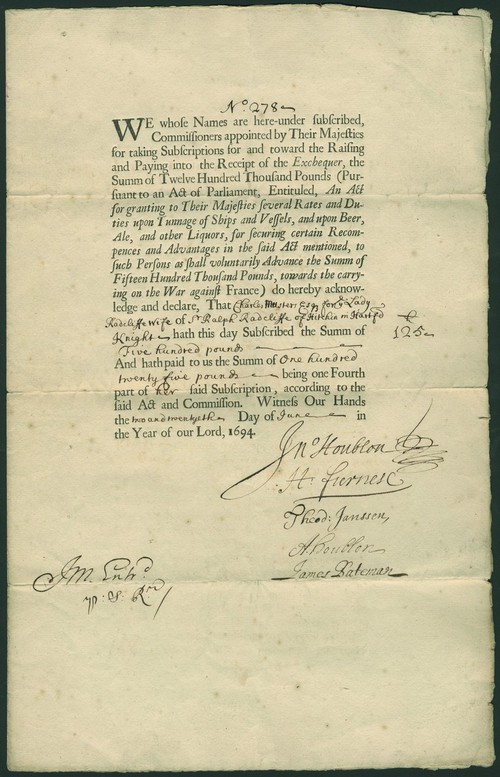 No 278
WE whose Names are here-under subscribed,
Commissioners appointed by Their Majesties
for taking Subscriptions for and toward the Raising
and Paying into the Receipt of the Exchequer, the
Summ of Twelve Hundred Thousand Pounds (Pur-
suant to an Act of Parliament, Entituled, An Act
for granting to Their Majesties several Rates and Du-
ties upon Tunnage of Ships and Vessels, and upon Beer,
Ale, and other Liquors, for securing certain Recom-
pences and Advantages in the said Act mentioned, to
such Persons as shall voluntarily Advance the Summ of
Fifteen Hundred Thousand Pounds, towards the carry-
ing on the War against France) do hereby acknow-
ledge and declare, That Charles Esqr for ye Lady
Radcliffe wife of Sr Ralph Radcliffe of Hitchin in Hartfd
Knight hath this day Subscribed the Summ of
Five hundred pounds
£ 125
And hath paid to us the Summ of One hundred
twenty five pounds being one Fourth
part of her said Subscription, according to the
said Act and Commission. Witness Our Hands
the two and twentyeth Day of June in
the Year of our Lord, 1694.
Jno Houblon
H: Furnese
Theod: Janssen,
A Houblon
James Bateman
JM. Entrd